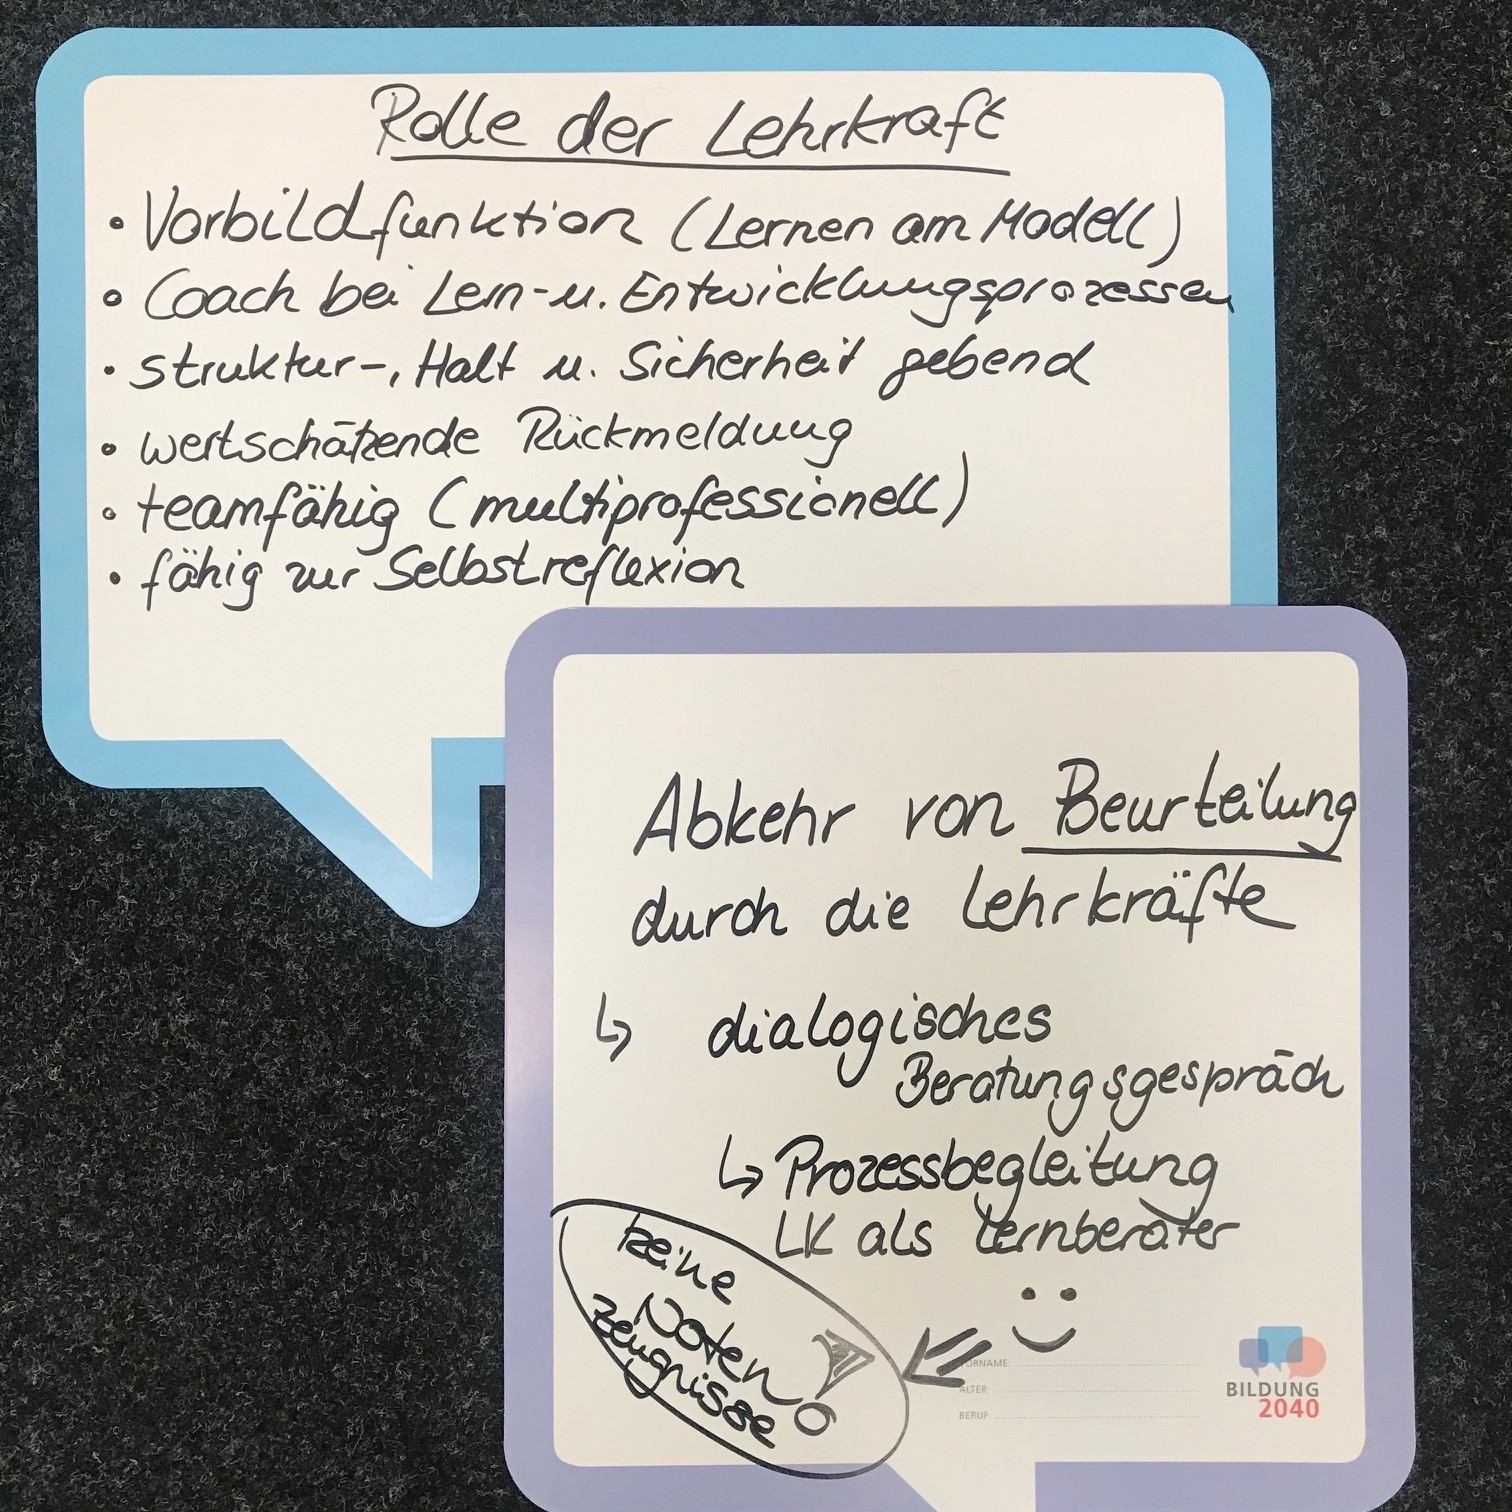 Rolle der Lehrkraft
• Vorbildfunktion (Lernen am Modell)
• Coach bei Lern- u. Entwicklungsprozessen
• struktur-, Halt u. Sicherheit gebend
• wertschätzende Rückmeldung
• teamfähig (multiprofessionell)
• fähig zur Selbstreflexion
Abkehr von Beurteilung
durch die Lehrkräfte
↳ dialogisches
Beratungsgespräch
↳ Prozessbegleitung
LK als Lernberater
keine
Noten
zeugnisse!
VORNAME:
ALTER:
BERUF:
BILDUNG
2040